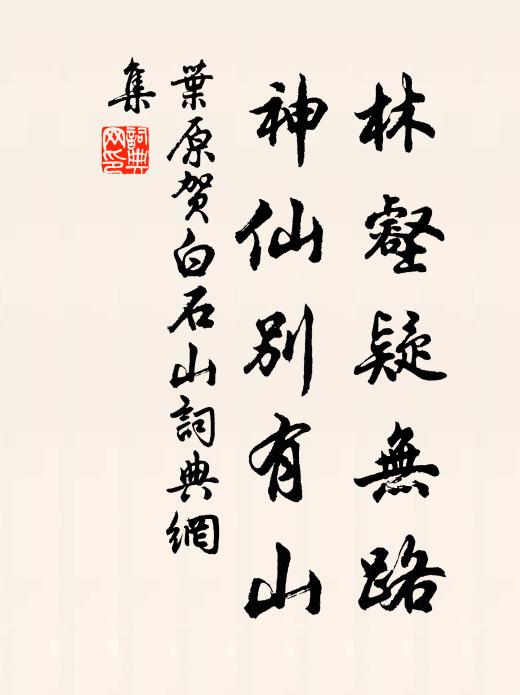 林壑疑無路
神仙別有山
葉原賀白石山詞典網
集
詞典
网印